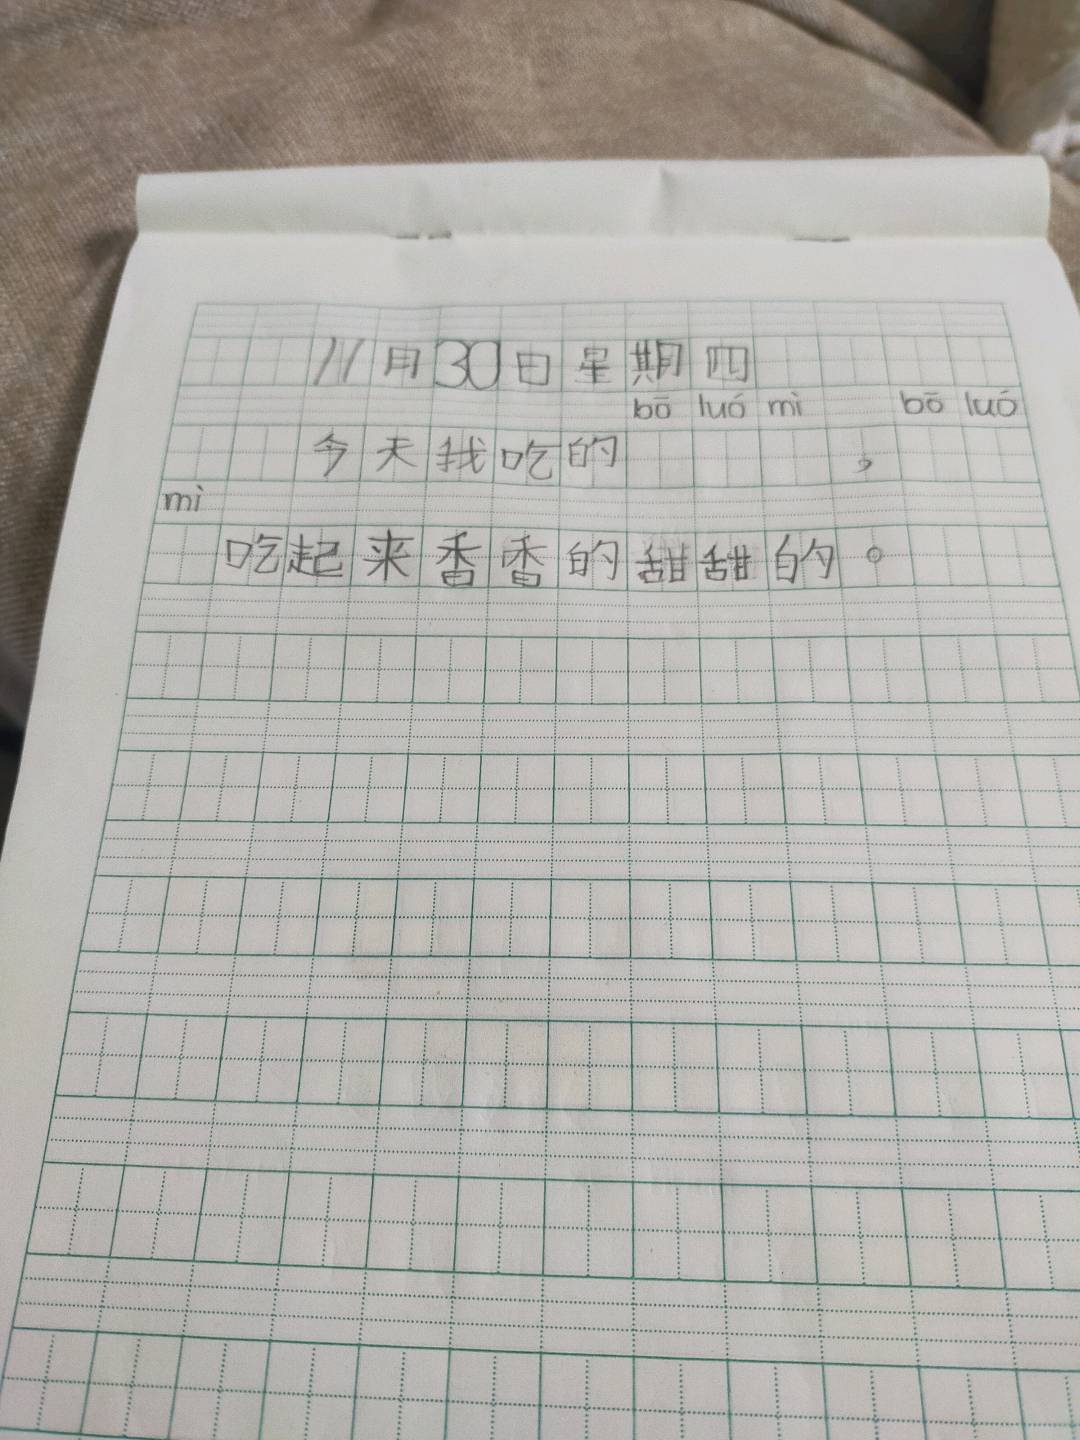 11月30日星期四
bō luó mì bō luó
今天我吃的 ，
mì
吃起来香香的甜甜的。